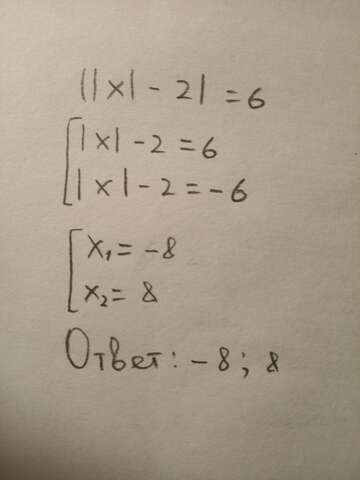 ||x| - 2| = 6
|x| - 2 = 6
|x| - 2 = - 6
x₁ = -8
x₂ = 8
Ответ: - 8; 8